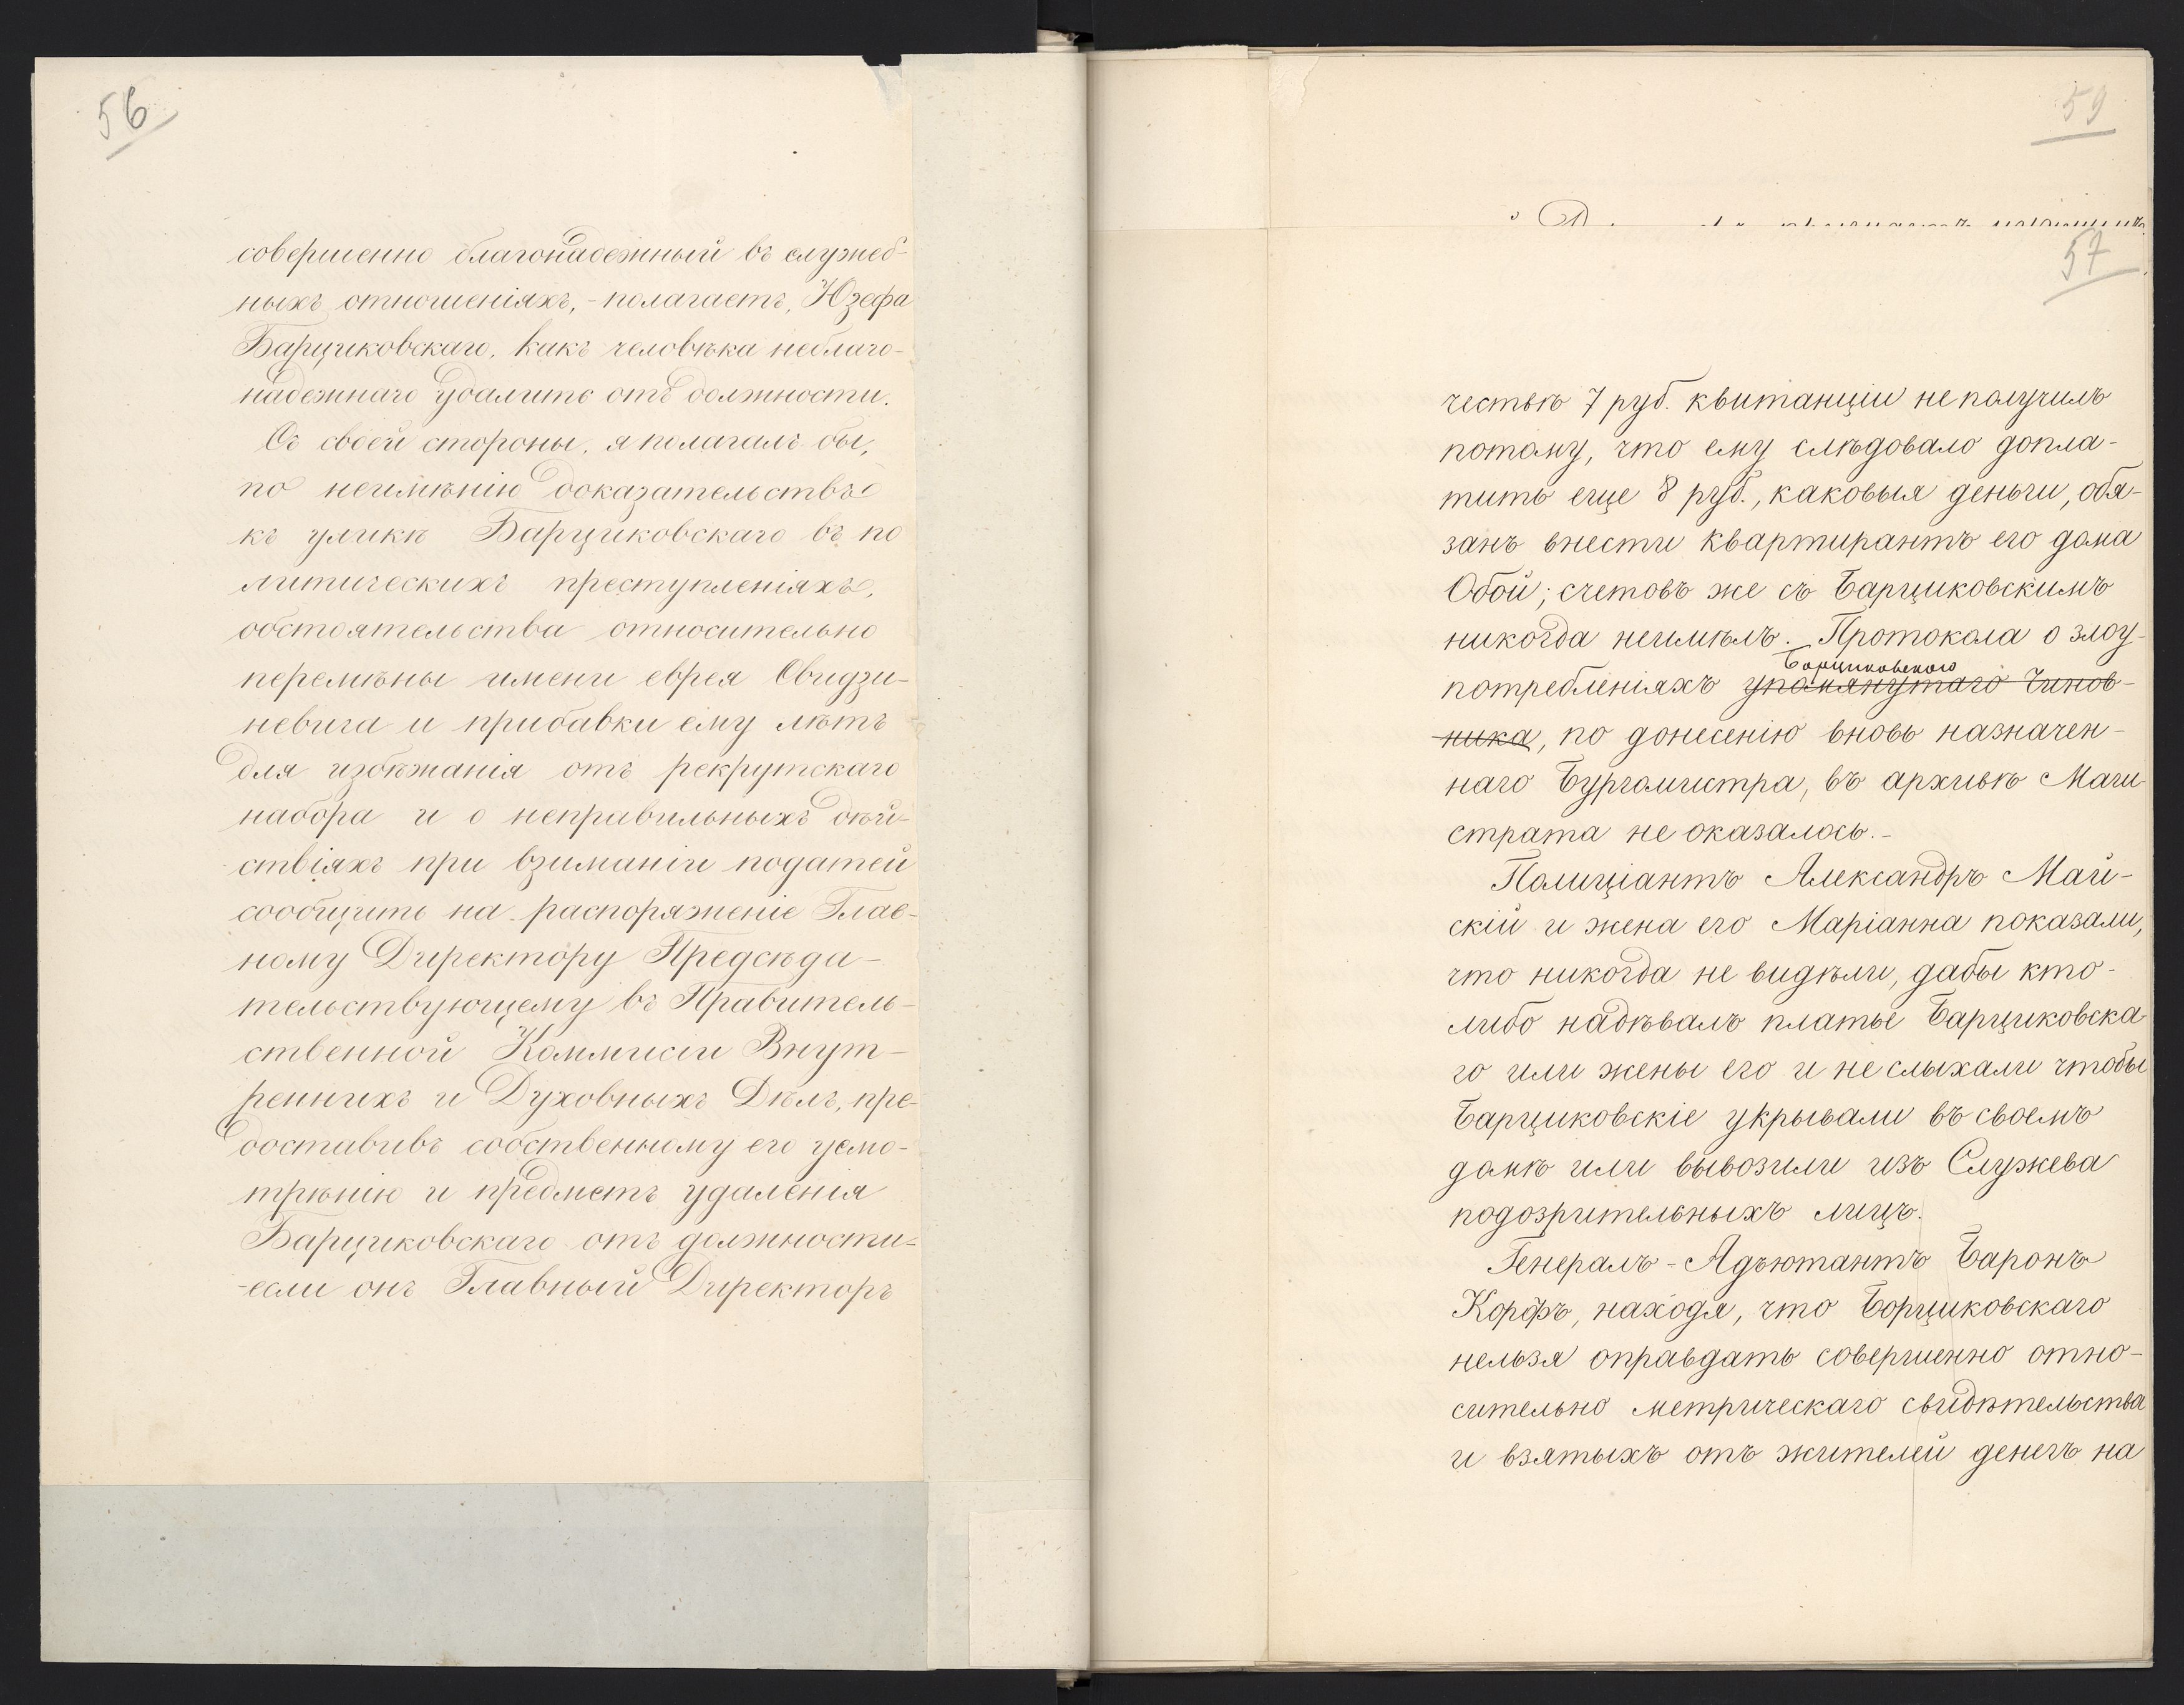 56
совершенно благонадежный въ служеб-
ныхъ отношеніяхъ, - полагаетъ, Юзефа
Барциковскаго, какъ человѣка неблаго-
надежнаго удалить отъ должности.
Съ своей стороны, я полагалъ бы,
по неимѣнію доказательствъ
къ уликѣ Барциковскаго въ по
литическихъ преступленіяхъ,
обстоятельства относительно
перемѣны имени еврея Свидзи-
невича и прибавки ему лѣтъ
для избѣжанія отъ рекрутскаго
набора и о неправильныхъ дѣй-
ствіяхъ при взиманіи податей
сообщить на распоряженіе Глав-
ному Директору Предсѣда-
тельствующему въ Правитель-
ственной Коммисіи Внут-
реннихъ и Духовныхъ Дѣлъ, пре-
доставивъ собственному его усмо-
трѣнію и предметъ удаленія
Барциковскаго отъ должности-
-если онъ Главный Директоръ
59
57
честью 7 руб. квитанціи не получилъ
потому, что ему слѣдовало допла-
тить еще 8 руб., каковыя деньги, обя-
занъ внести квартирантъ его дома
Обой; счетовъ же съ Барциковскимъ
никогда неимѣлъ. Протокола о злоу-
Барциковскаго
потребленіяхъ упомянутаго Чинов-
ника, по донесенію вновь назначен-
наго Бургомистра, въ архивѣ Маги-
страта не оказалось.-
Полиціантъ Александръ Май-
скій и жена его Маріанна показали,
что никогда не видѣли, дабы кто-
либо надѣвалъ платье Барциковска
го или жены его и не слыхали чтобы
Барциковскіе укрывали въ своемъ
домѣ или вывозили изъ Служева
подозрительныхъ лицъ.
Генералъ-Адъютантъ Баронъ
Корфъ, находя, что Борциковскаго
нельзя оправдать совершенно отно-
сительно метрическаго свидѣтельства
и взятыхъ отъ жителей денегъ на